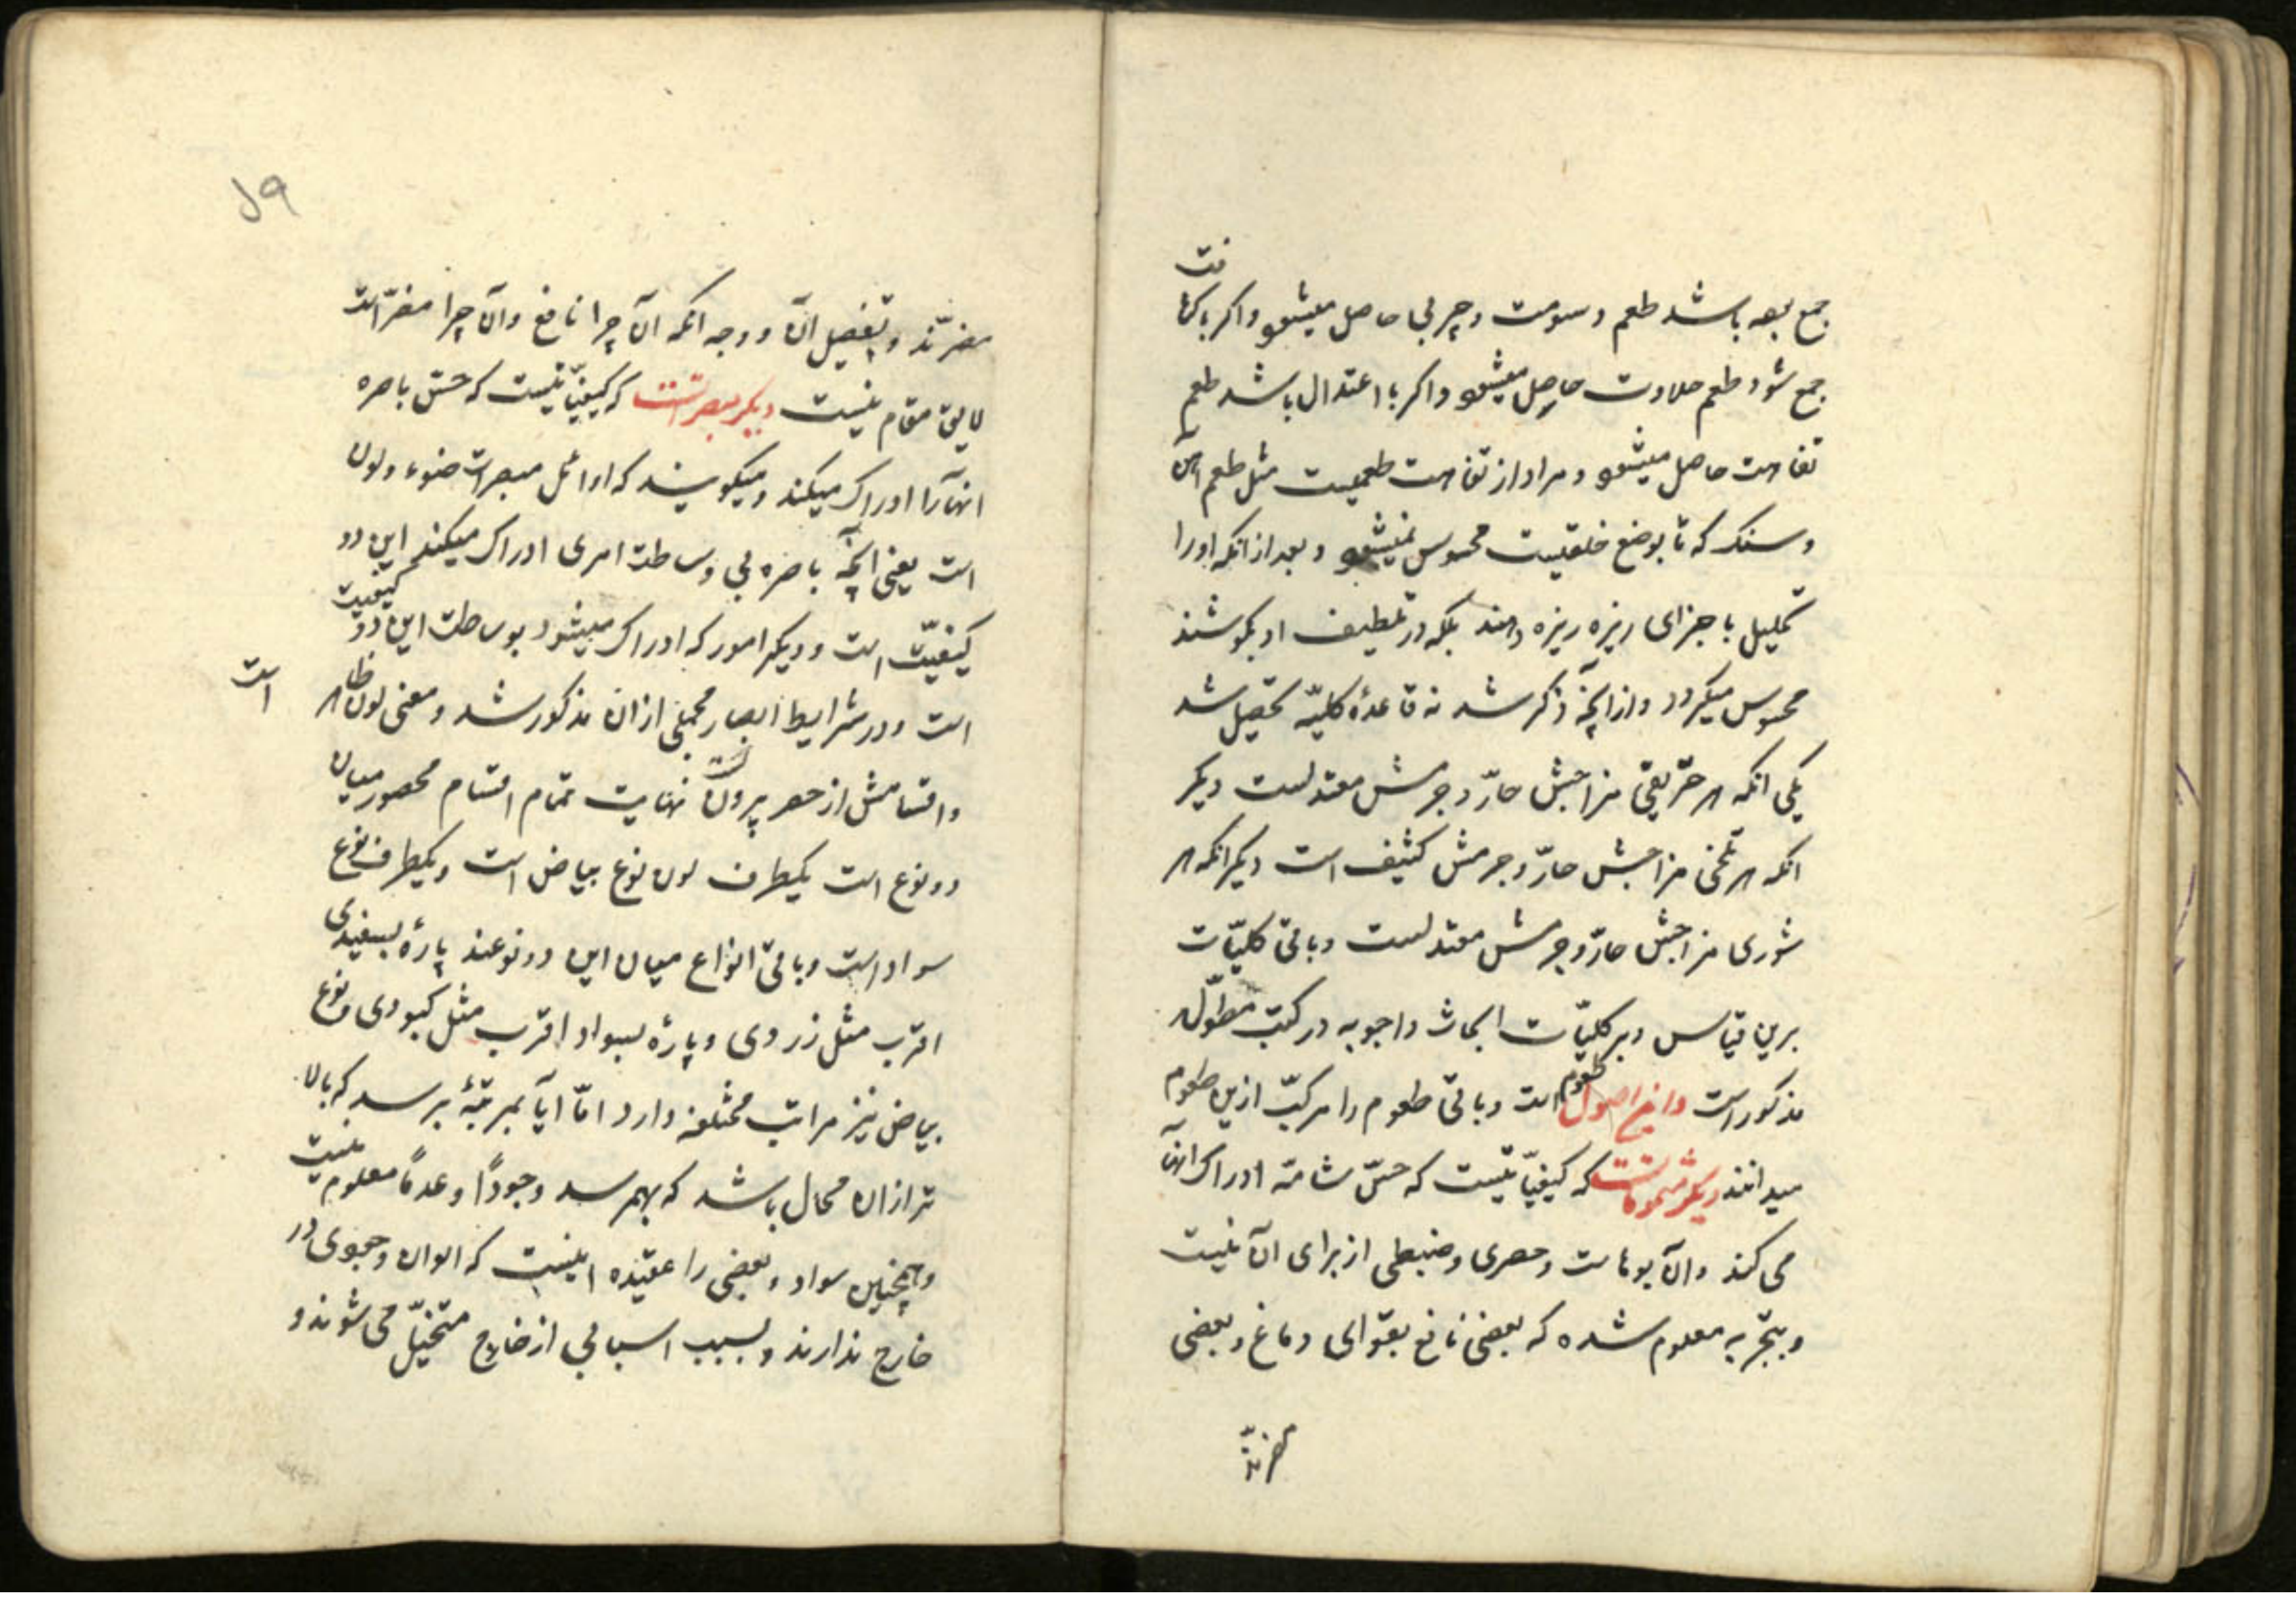 جمع بوده باشد طعم دسومت و چربی حاصل میشود و اکر با کثافت
جمع شود طعم حلاوت حاصل میشود و اکر با اعتدال باشد طعم
تفاهت حاصل میشود و مراد از تفاهت طعمیست مثل طعم آهن
و سنک که تا بوضع خلقیست محسوس نمیشود و بعد از انکه او را
تحلیل باجزای ریزه ریزه دهند بلکه در تلطیف او بکوشند
محسوس میکردد و از آنچه ذکر شد نه قاعدهٔ کلیّه تحصیل شد
یکی انکه هر حرّیقی مزاجش حارّ و جرمش معتدلست دیکر
انکه هر تلخی مزاجش حارّ و جرمش کثیف است دیکر انکه هر
شوری مزاجش حارّ و جرمش معتدلست و باقی کلیّات
برین قیاس و بر کلیّات ابحاث و اجوبه در کتب مطوّله
مذکور است و این اصول طعوم است و باقی طعوم را مرکّب ازین طعوم
میدانند دیکر مشمومات است که کیفیّاتیست که حسّ شامّه ادراک آنها
می کند و آن بوهاست و حصری و ضبطی از برای آن نیست
و بتجربه معلوم شده که بعضی نافع بقوای دماغ و بعضی
مضرّند
۱۹
مضرّند و تفصیل آن و وجه انکه آن چرا نافع و آن چرا مضرّ است
لایق مقام نیست دیکر مبصرات است که کیفیّاتیست که حسّ باصره
انها را ادراک میکند و میکویند که اوائل مبصرات ضوء و لون
است یعنی آنچه باصره بی وساطت امری ادراک میکند این دو
کیفیّت است و دیکر امور که ادراک میشود بوساطت این دو کیفیت
است و در شرایط ابصار مجملی ازان مذکور شد و معنی لون ظاهر است
و اقسامش از حصر بیرون است نهایت تمام اقسام محصور میان
دو نوع است یکطرف لون نوع بیاض است و یکطرف نوع
سواد است و باقی انواع میان این دو نوعند پارهٔ بسفیدی
اقرب مثل زردی و پارهٔ بسواد اقرب مثل کبودی و نوع
بیاض نیز مراتب مختلفه دارد امّا آیا بمرتبهٔ برسد که بالا
تر ازان محال باشد که بهم رسد وجوداً و عدماً معلوم نیست
و همچنین سواد و بعضی را عقیده اینست که الوان وجودی در
خارج ندارند و بسبب اسبابی از خارج متخیّل می شوند و